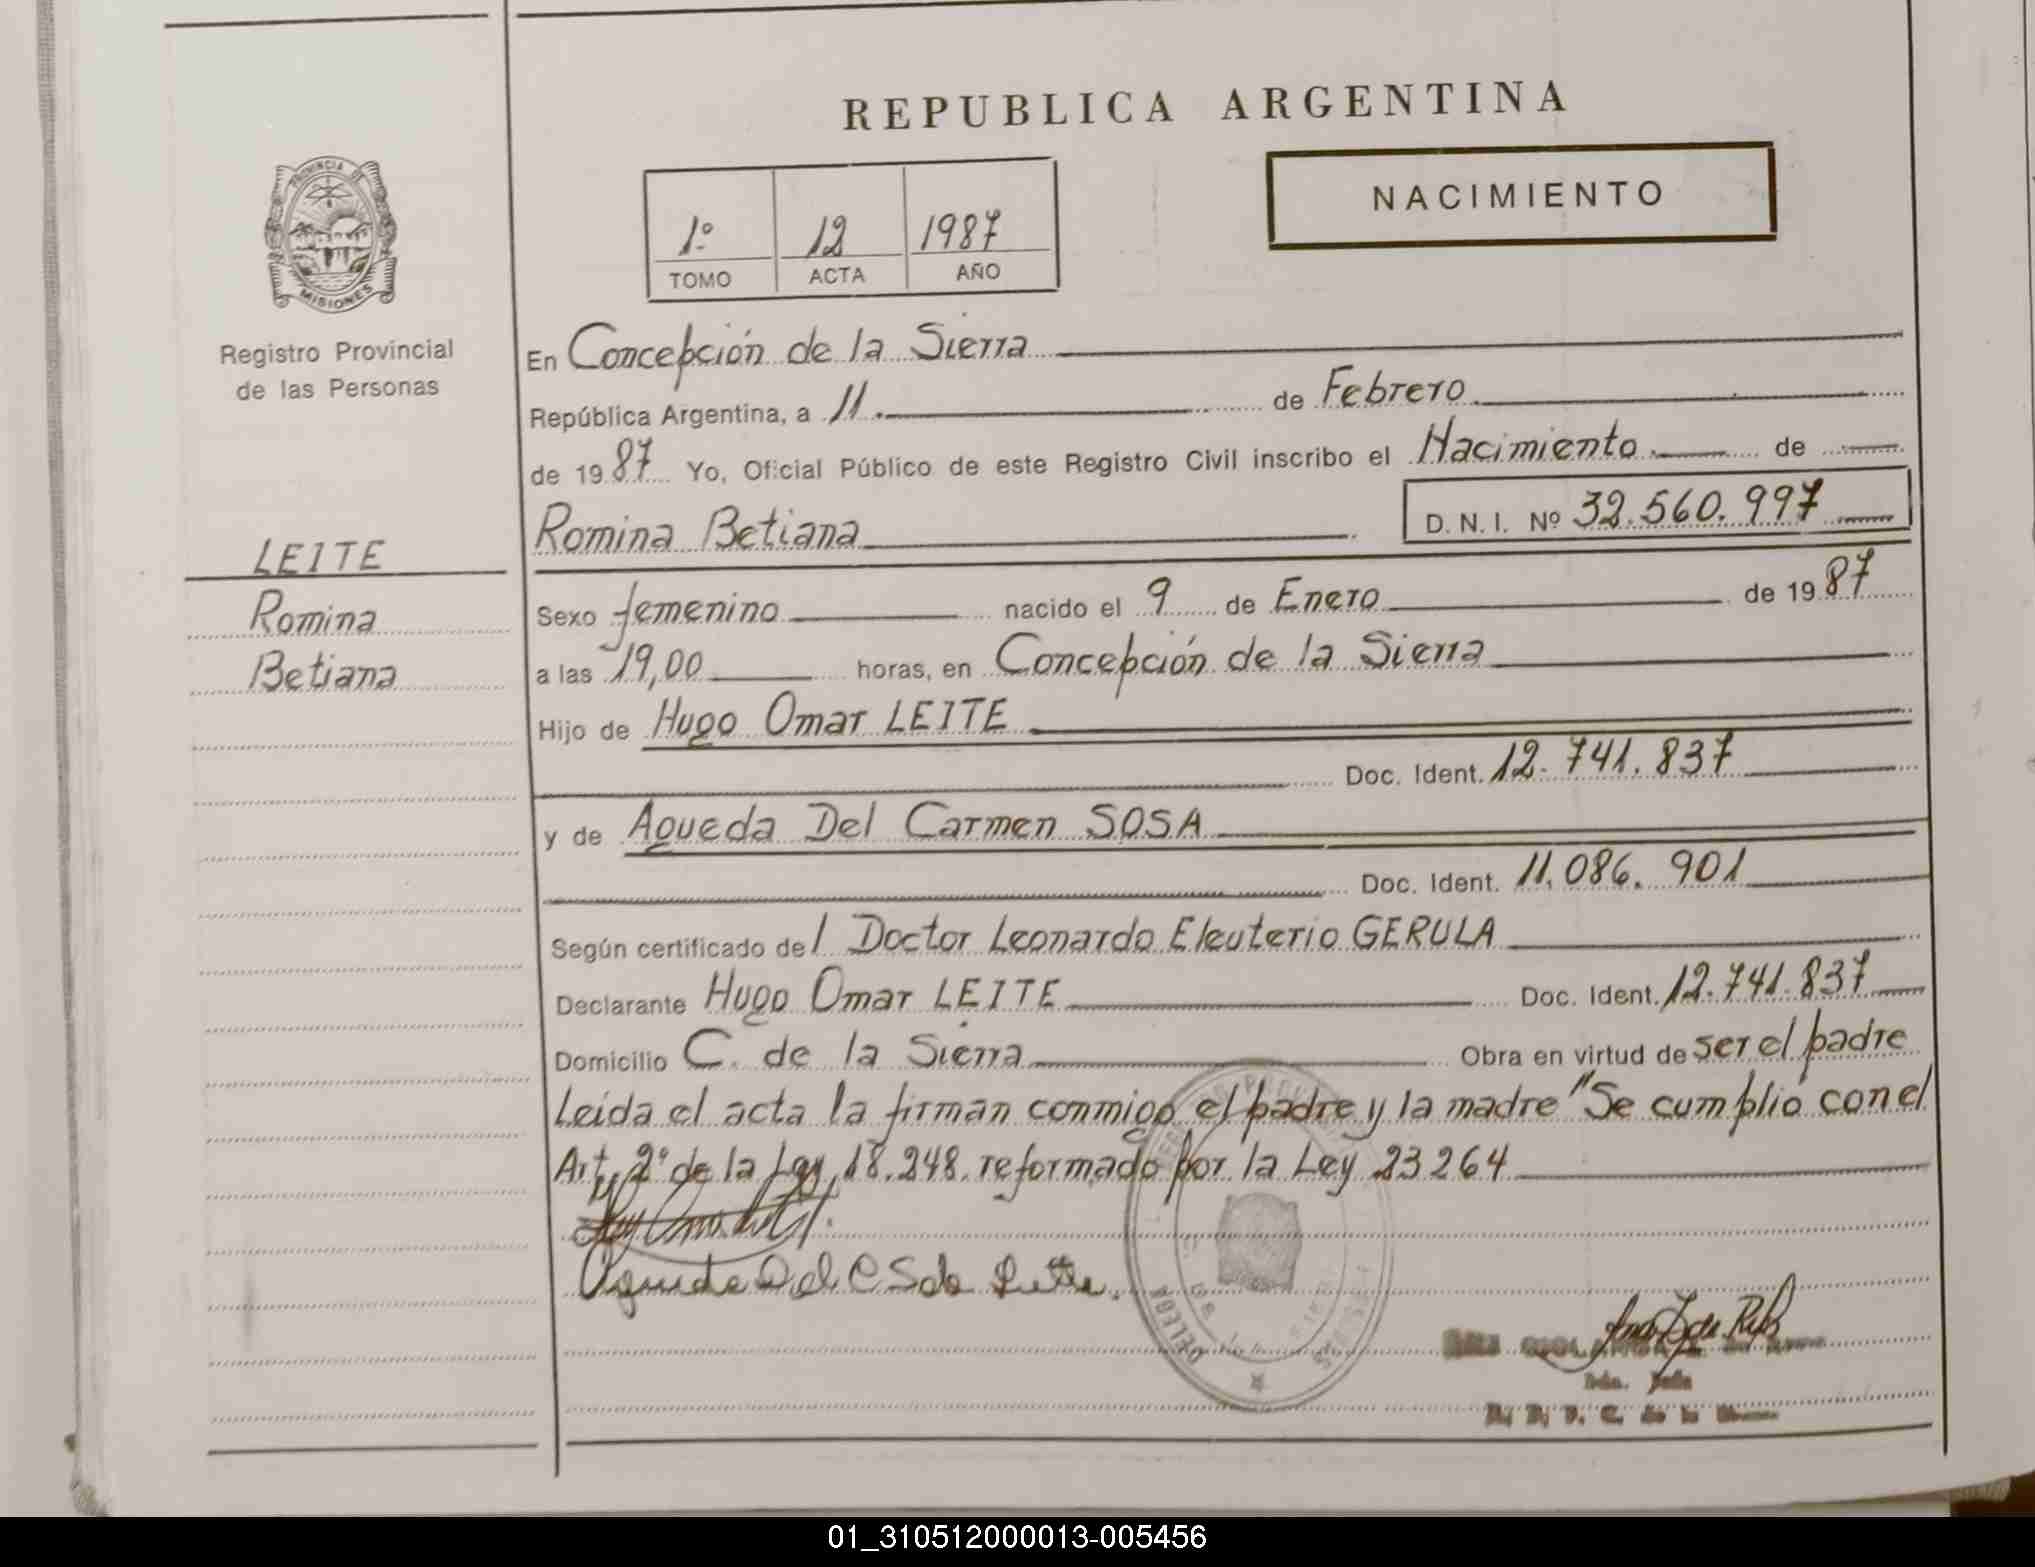 REPUBLICA ARGENTINA
NACIMIENTO
1º 12 1987
TOMO ACTA AÑO
PROVINCIA DE
MISIONES
Registro Provincial
de las Personas
LEITE
Romina
Betiana
En Concepción de la Sierra
República Argentina, a 11. de Febrero
de 1987 Yo, Oficial Público de este Registro Civil inscribo el Nacimiento de
Romina Betiana D. N. I. Nº 32.560.997
Sexo femenino nacido el 9 de Enero de 1987
a las 19,00 horas, en Concepción de la Sierra
Hijo de Hugo Omar LEITE
Doc. Ident. 12.741.837
y de Agueda Del Carmen SOSA
Doc. Ident. 11.086.901
Según certificado del Doctor Leonardo Eleuterio GERULA
Declarante Hugo Omar LEITE Doc. Ident. 12.741.837
Domicilio C. de la Sierra Obra en virtud de ser el padre
Leida el acta la firman conmigo el padre y la madre "Se cumplió con el
Art. 2º de la Ley 18.248. reformado por la Ley 23264
Agueda Del C S de Leite.
01_310512000013-005456